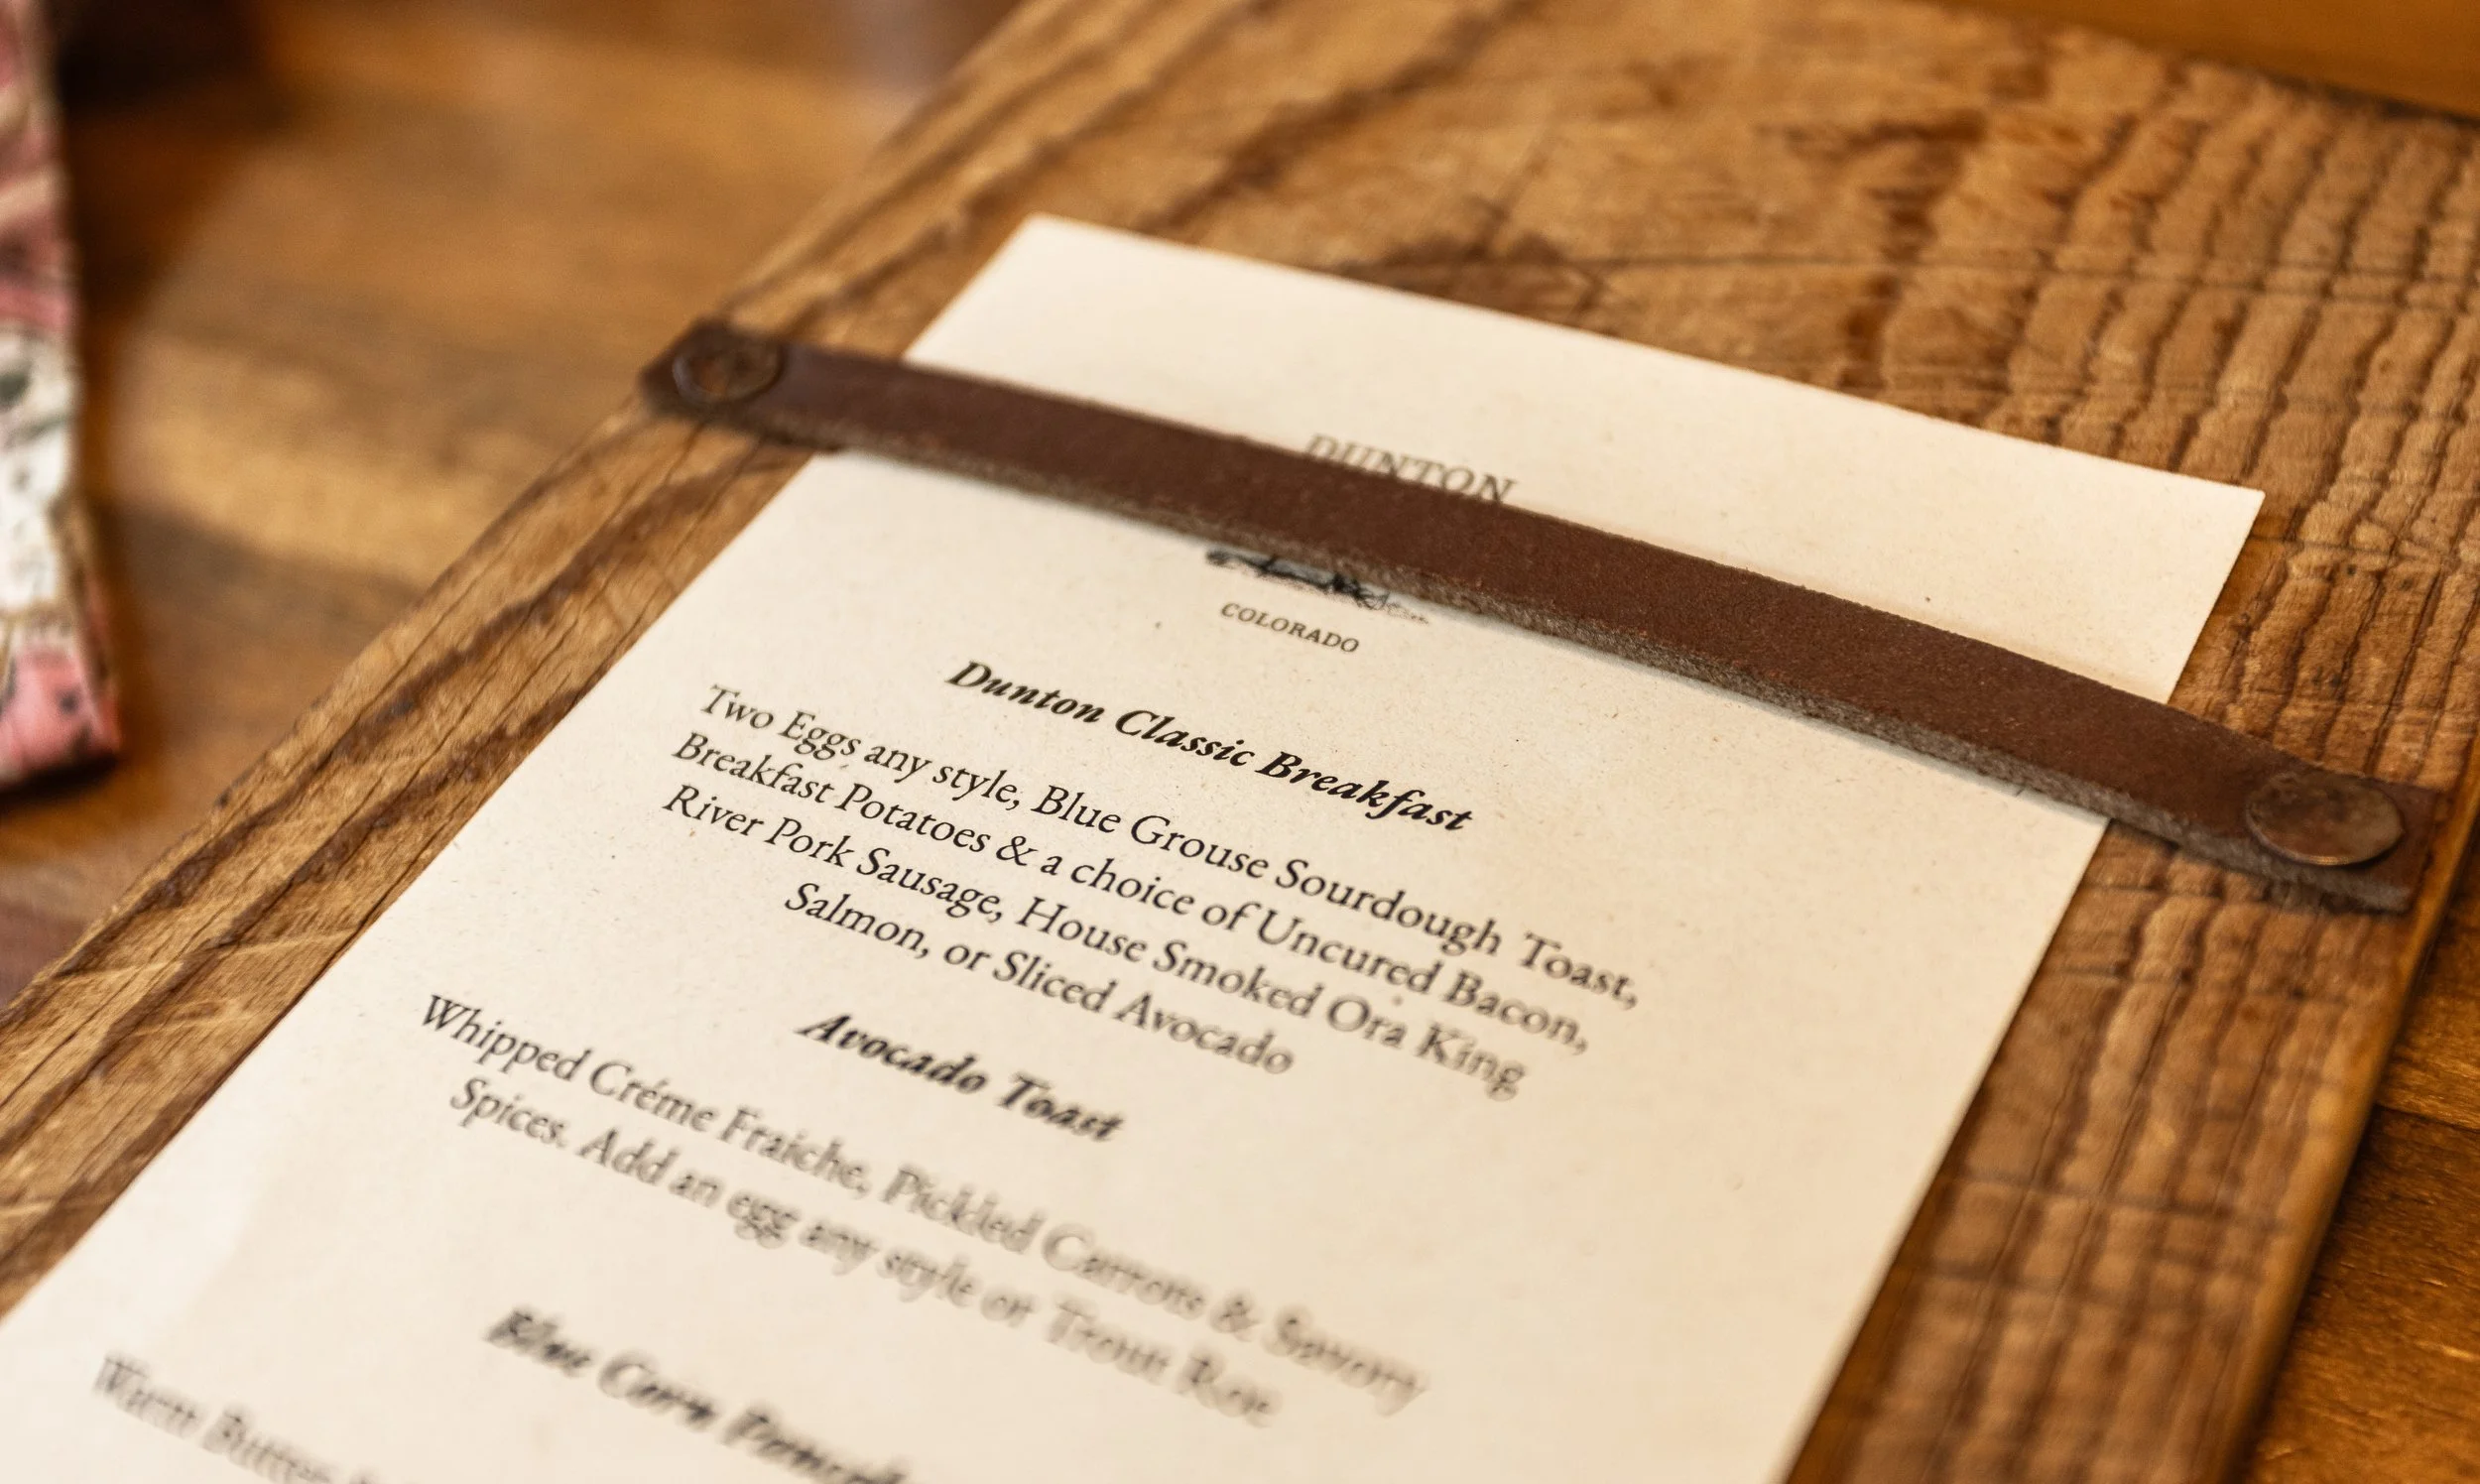 DUNTON
COLORADO
Dunton Classic Breakfast
Two Eggs any style, Blue Grouse Sourdough Toast,
Breakfast Potatoes & a choice of Uncured Bacon,
River Pork Sausage, House Smoked Ora King
Salmon, or Sliced Avocado
Avocado Toast
Whipped Créme Fraiche, Pickled Carrots & Savory
Spices. Add an egg any style or Trout Roe
Blue Corn
Warm Butter